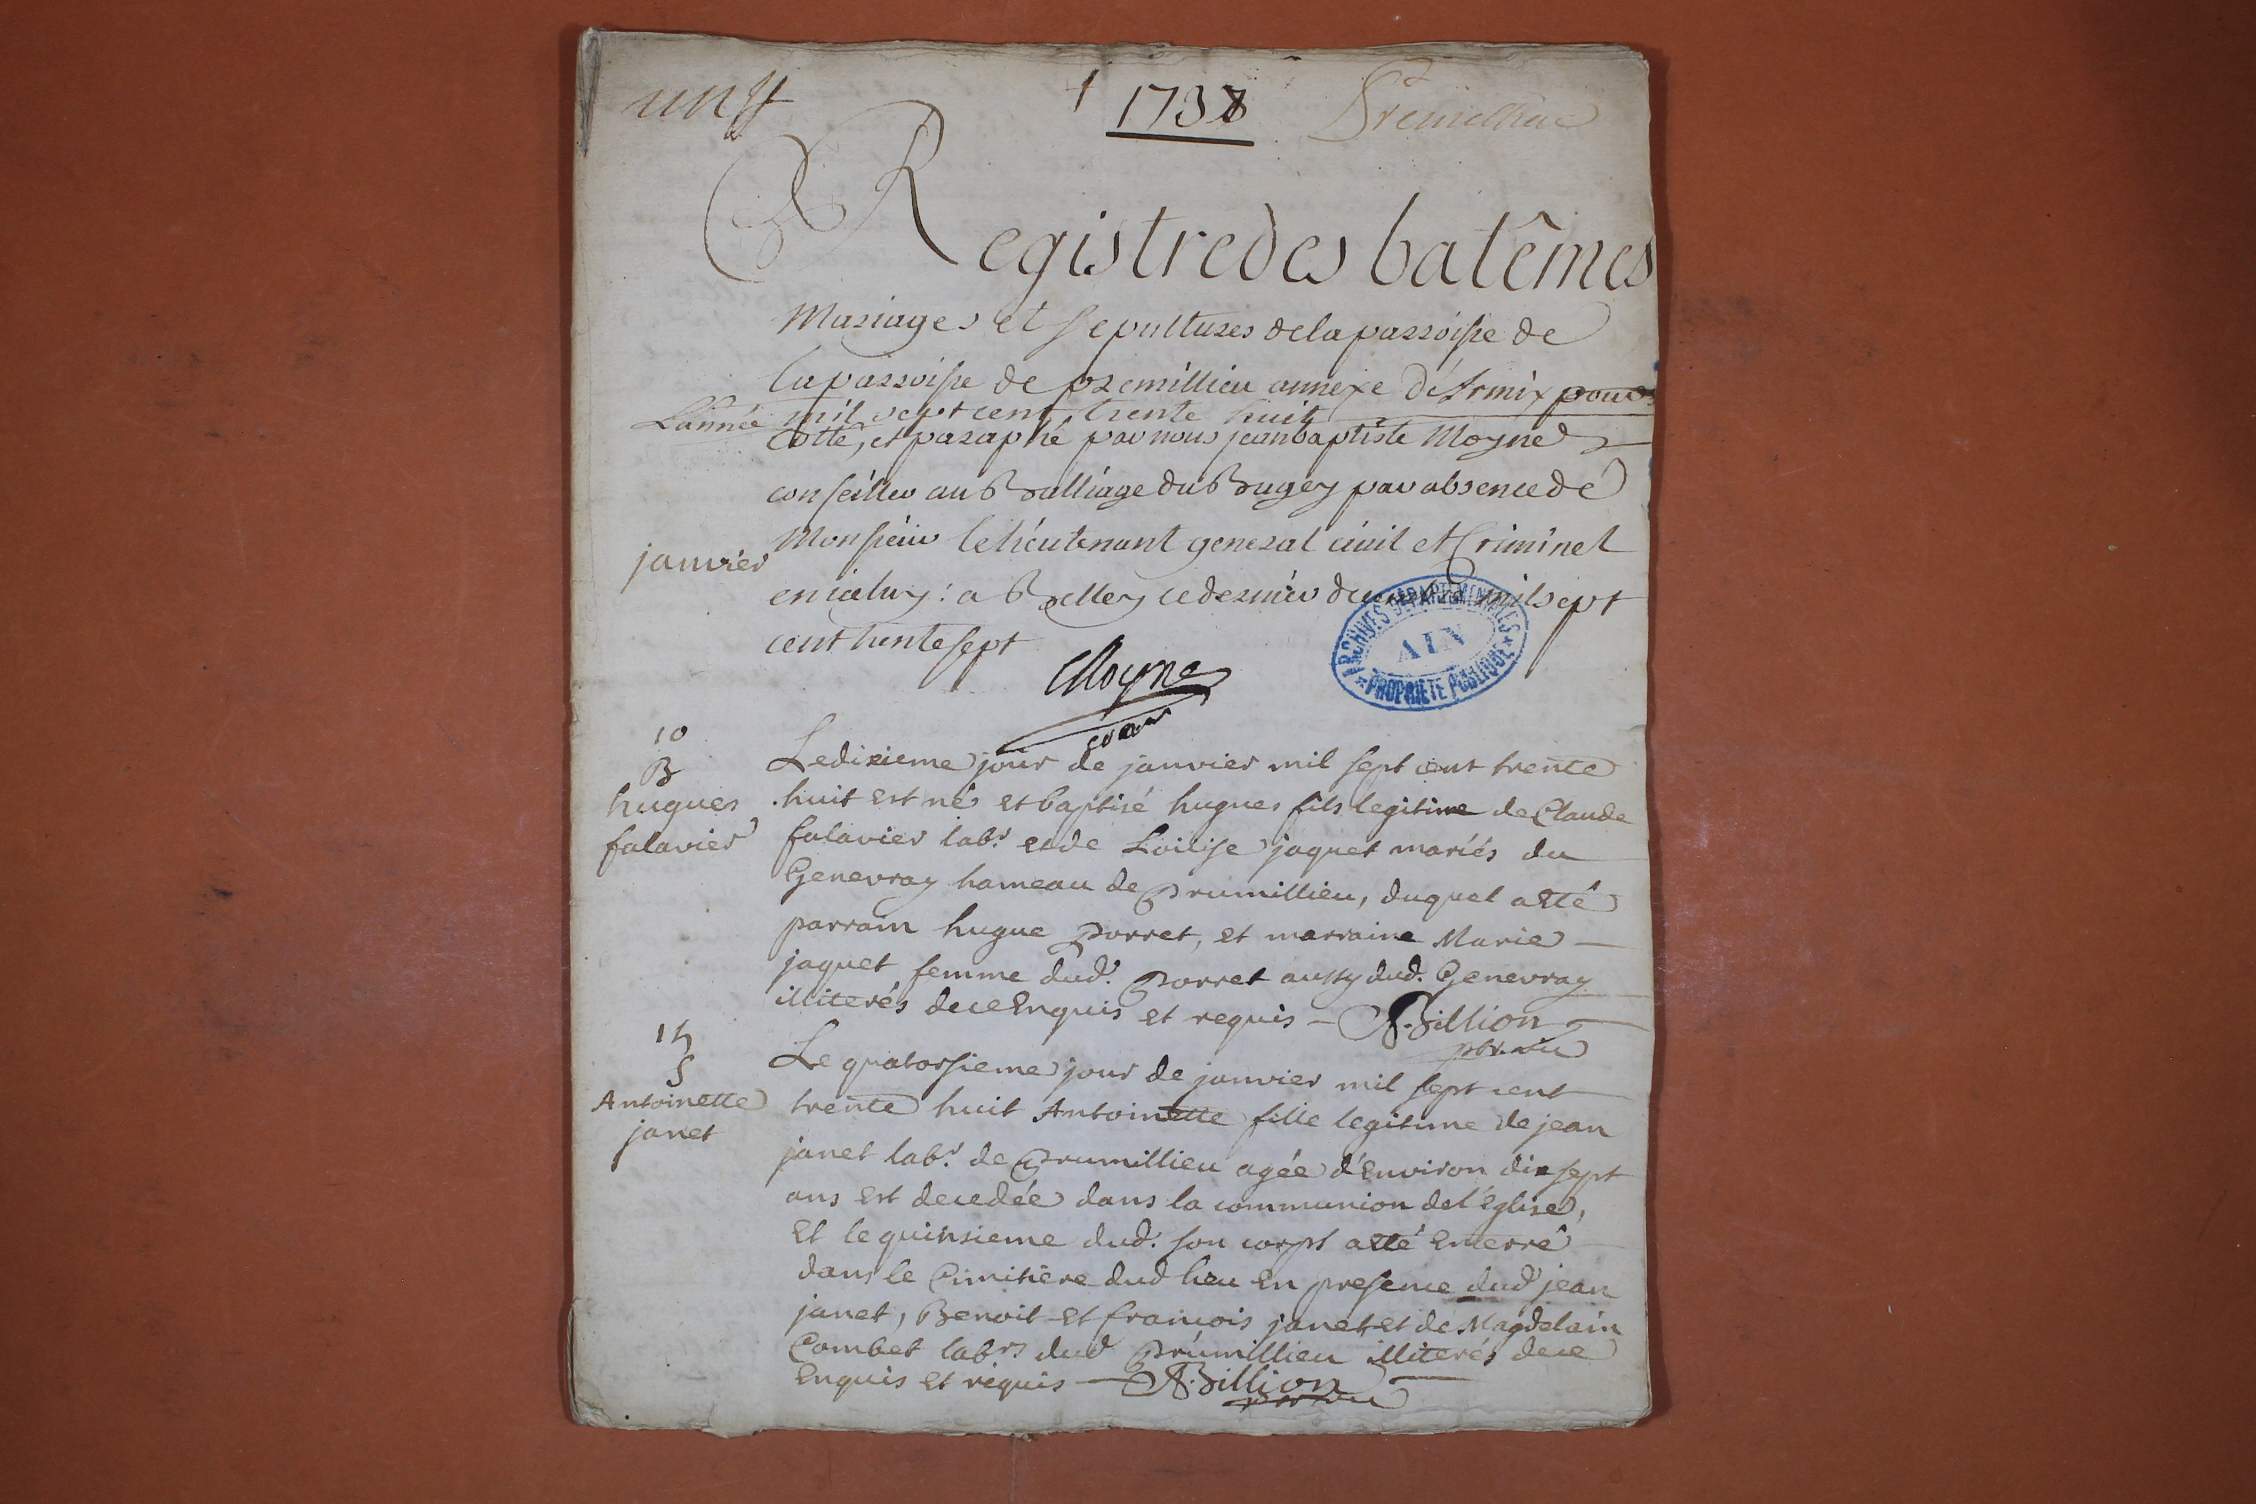 1738
Registre des batêmes
Mariages et sepultures de la parroisse de
la parroisse de premillieu annexe d'Armix pour
L'année mil sept cent trente huit
Cotté, et paraphé par nous jean baptiste Moyne
conseiller au Balliage du Bugey par absence de
Monsieur le lieutenant general civil et Criminel
en iceluy : a Belley ce dernier decembre mil sept
cent trente sept
Moyne
ARCHIVES DEPARTEMENTALES
AIN
PROPRIETE PUBLIQUE
janvier
10
B
hugues
falavier
Le dixieme jour de janvier mil sept cent trente
huit est né et baptisé hugues fils legitime de Claude
falavier labr. et de Loüise jaquet mariés du
Genevray hameau de Prumillieu, duquel a eté
parrain hugue Porret, et marraine Marie
jaquet femme dud. Porret aussy dud. Genevray
illiterés de ce Enquis et requis — Billion
14
S
Antoinette
janet
Le quatorsieme jour de janvier mil sept cent
trente huit Antoinette fille legitime de jean
janet labr. de Prumillieu agée d'Environ dix sept
ans est decedée dans la communion de l'Eglise,
Et le quinsieme dud. son corps a eté Enterré
dans le Cimitière dud lieu en presence dud jean
janet, Benoit et françois janet et de Magdelain
Combet labrs dud Prumillieu illiterés de ce
Enquis et requis — Billion